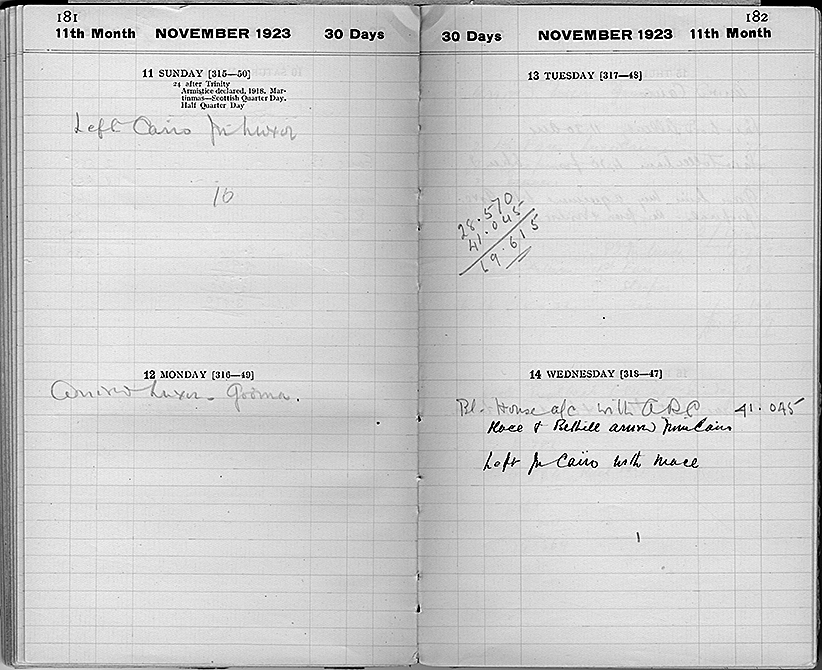 181
11th Month NOVEMBER 1923 30 Days
11 SUNDAY [315—50]
24 after Trinity
Armistice declared, 1918. Mar-
tinmas—Scottish Quarter Day.
Half Quarter Day
Left Cairo for Luxor
10
12 MONDAY [316—49]
Arrived Luxor - Goorna.
182
30 Days NOVEMBER 1923 11th Month
13 TUESDAY [317—48]
28.570
41.045
69.615
14 WEDNESDAY [318—47]
Bl. House a/c with A.R.C 41.045
Mace & Bethell arrived from Cairo
Left for Cairo with Mace
1